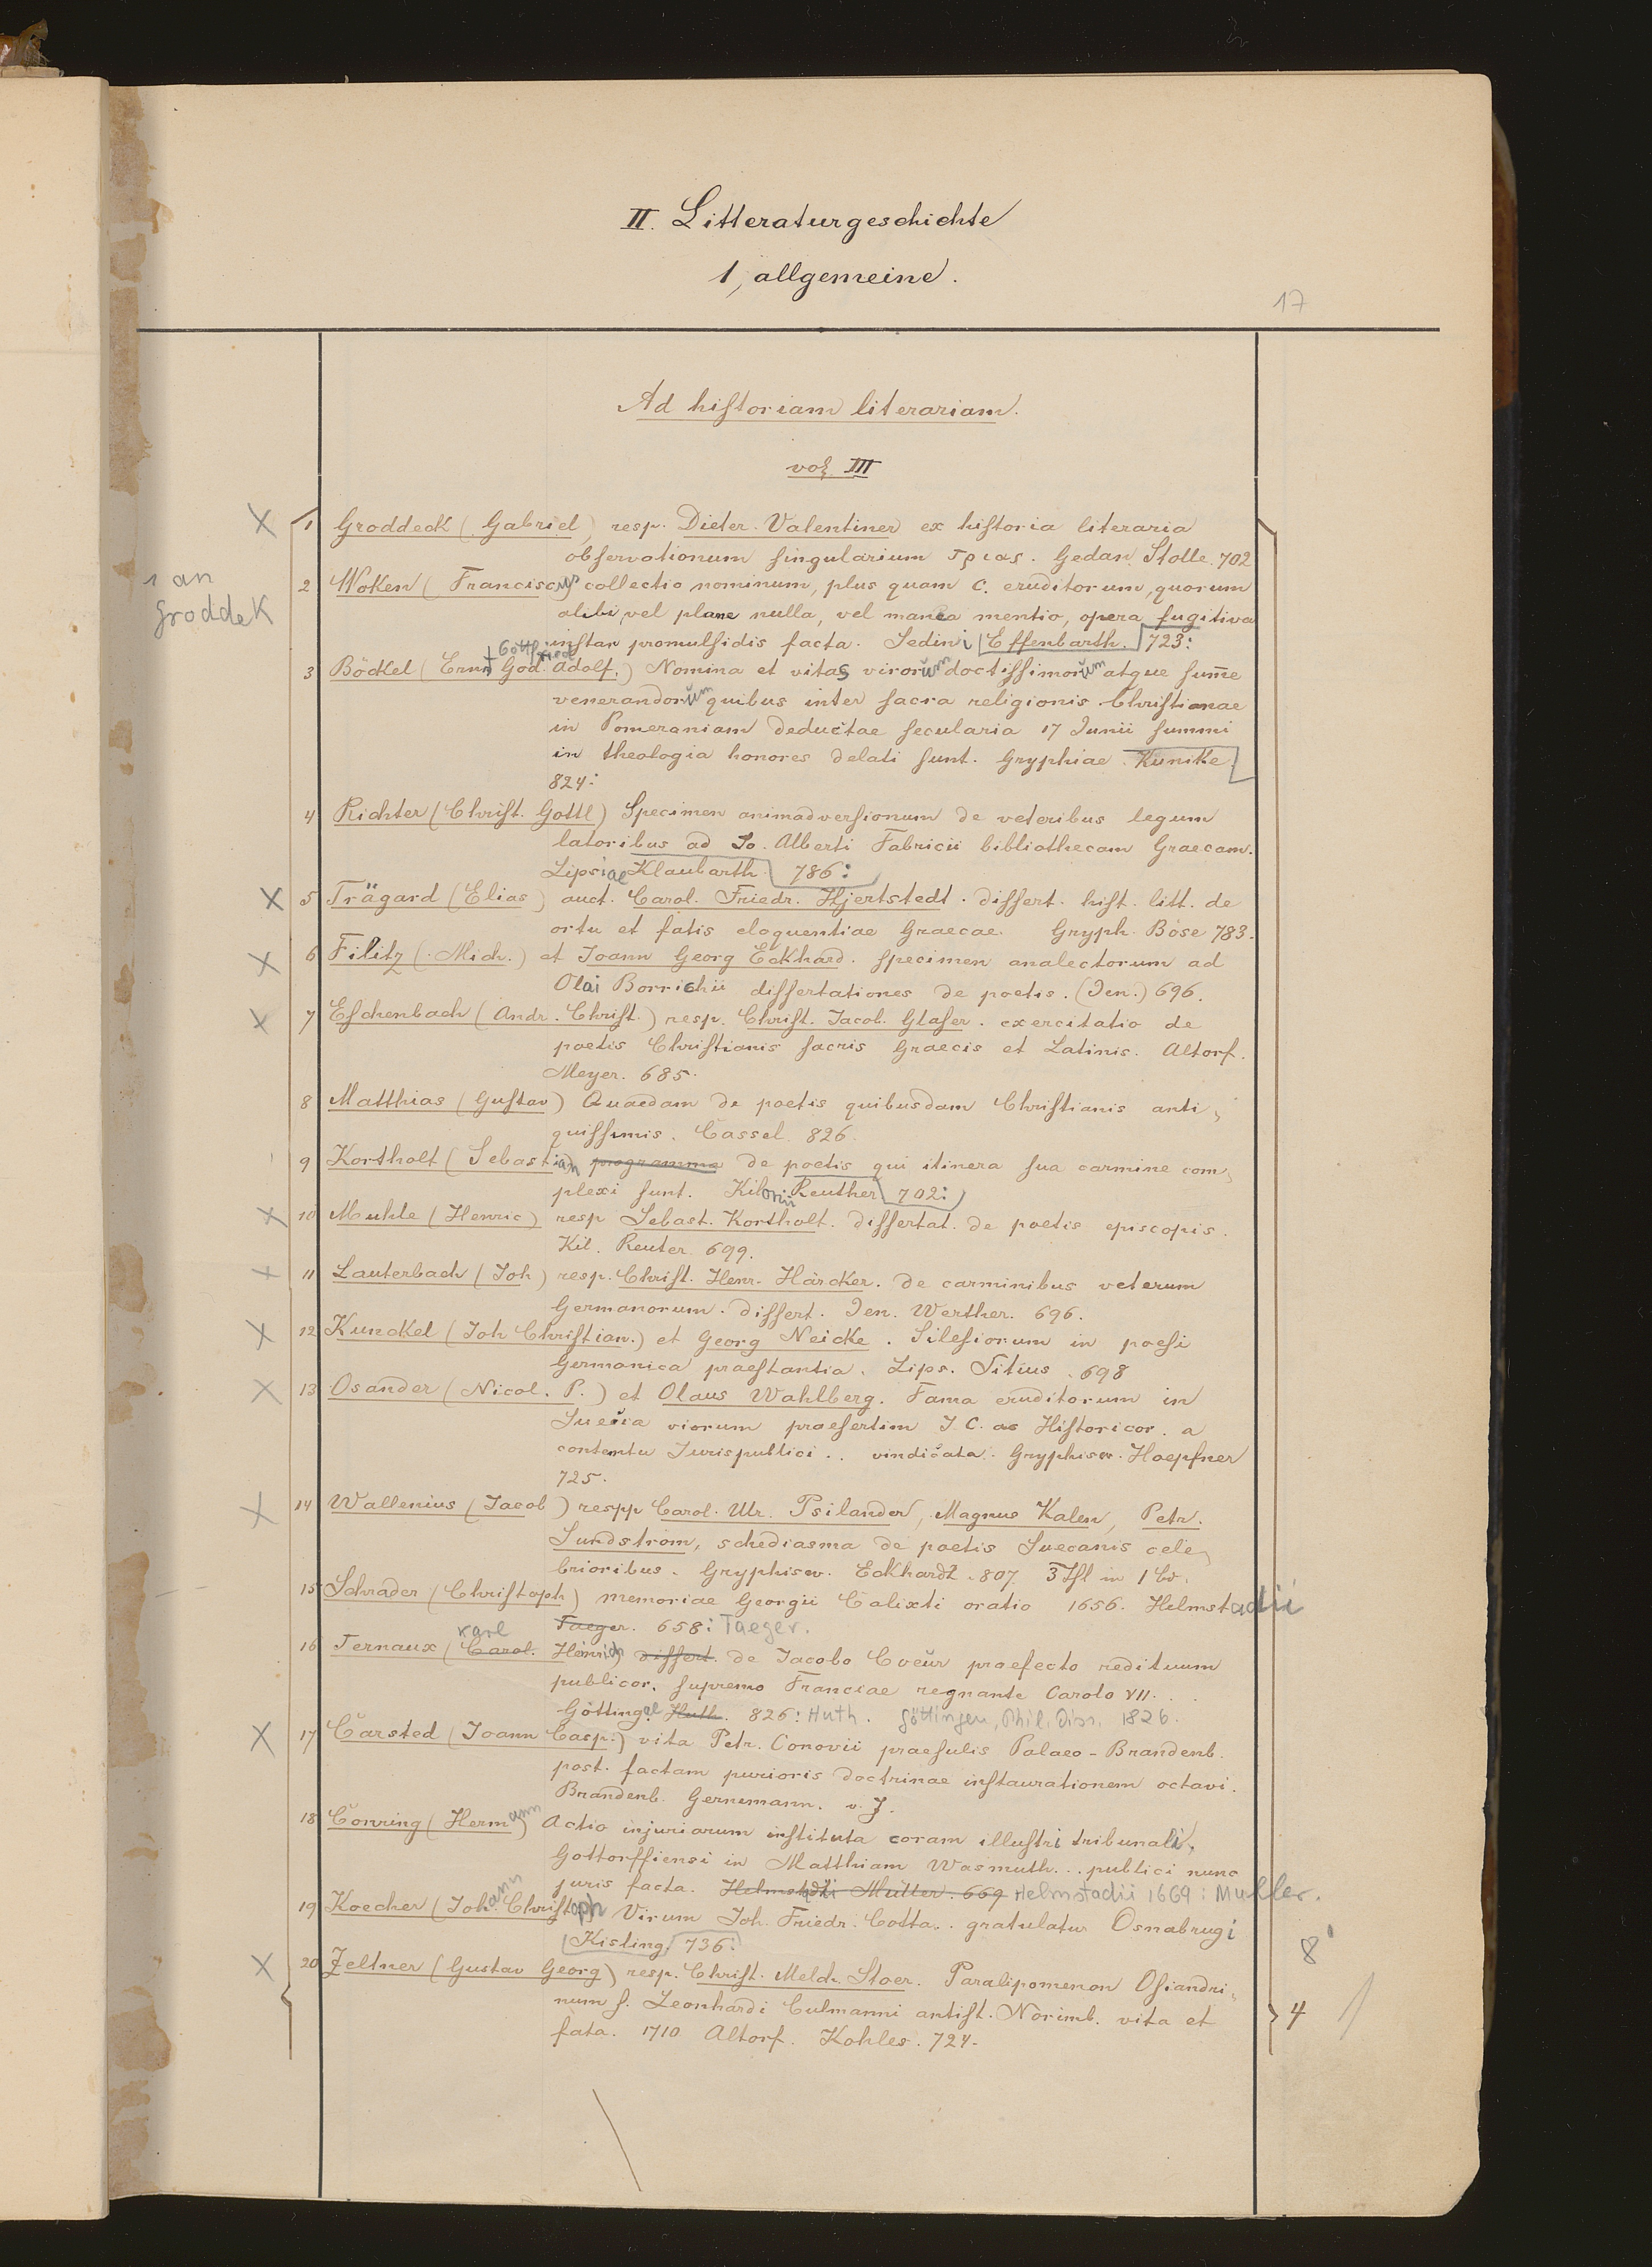 II. Litteraturgeschichte
1, allgemeine.
17
Ad historiam literariam.
vol III
1 Groddeck (Gabriel) resp. Dieter. Valentiner ex historia literaria
observationum singularium τριας. Gedan. Stolle. 702
1 an
Groddek
2 Woken (Franciscus) collectio nominum, plus quam C. eruditorum, quorum
alibi vel plane nulla, vel manca mentio, opera fugitiva
instar promulsidis facta. Sedini Effenbarth. 723:
3 Böckel (Ernst Gottfried God. Adolf.) Nomina et vitas virorum doctissimorum atque sum̄e
venerandorum quibus inter sacra religionis Christianae
in Pomeraniam deductae secularia 17 Junii summi
in theologia honores delati sunt. Gryphiae. Kunike
824:
4 Richter (Christ. Gottl) Specimen animadversionum de veteribus legum
latoribus ad Jo. Alberti Fabricii bibliothecam Graecam.
Lipsiae Klaubarth. 786:
5 Trägard (Elias) auct. Carol. Friedr. Hjertstedt. dissert. hist. litt. de
ortu et fatis eloquentiae Graecae. Gryph. Böse 783.
6 Filitz (Mich.) et Joann Georg Eckhard. specimen analectorum ad
Olai Borrichii dissertationes de poetis. (Jen.) 696.
7 Eschenbach (Andr. Christ.) resp. Christ. Jacob. Glaser. exercitatio de
poetis Christianis sacris Graecis et Latinis. Altorf.
Meyer. 685.
8 Matthias (Gustav) Quaedam de poetis quibusdam Christianis anti,
quissimis. Cassel. 826.
9 Kortholt (Sebastian) programma de poetis qui itinera sua carmine com,
plexi sunt. Kilonii Reuther 702:
10 Muhle (Henric) resp Sebast. Kortholt. dissertat. de poetis episcopis.
Kil. Reuter. 699.
11 Lauterbach (Joh) resp. Christ. Henr. Härcker. de carminibus veterum
Germanorum. dissert. Jen. Werther. 696.
12 Kunckel (Joh Christian.) et Georg Neicke. Silesiorum in poesi
Germanica praestantia. Lips. Titius. 698
13 Osander (Nicol. P.) et Olaus Wahlberg. Fama eruditorum in
Suecia viorum praesertim J C. ac Historicor. a
contemtu Jurispublici.. vindicata. Gryphisw. Hoepfner
725.
14 Wallenius (Jacob) respp Carol. Ulr. Psilander, Magnus Kalen, Petr.
Sundström, schediasma de poetis Suecanis cele,
brioribus. Gryphisw. Eckhardt. 807. 3 Tfl in 1 Bd.
15 Schrader (Christoph) memoriae Georgii Calixti oratio 1656. Helmstadii
Taeger. 658: Taeger.
16 Ternaux (Karl Carol. Heinrich) dissert. de Jacobo Coeur praefecto redituum
publicor. supremo Franciae regnante Carolo VII...
Göttingae Huth. 826: Huth. Göttingen, Phil. Diss. 1826.
17 Carsted (Joann Casp.) vita Petr. Conovii praesulis Palaeo-Brandenb.
post. factam purioris doctrinae instaurationem octavi.
Brandenb. Gernemann. o. J.
18 Conring (Hermann) Actio injuriarum instituta coram illustri tribunali,
Gottorffiensi in Matthiam Wasmuth... publici nunc
juris facta. Helmstadti Müller. 669 Helmstadii 1669: Muller.
19 Koecher (Johann Christoph) Virum Joh. Friedr. Cotta.. gratulatur Osnabrugi
Kisling 736:
8°
20 Zeltner (Gustav Georg) resp. Christ. Melch. Stoer. Paralipomenon Osiandri,
num s. Leonhardi Culmanni antist. Norimb. vita et
4
fata. 1710 Altorf. Kohles. 724.